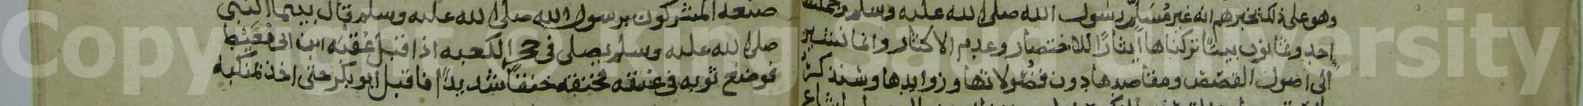 وهو على ذلك يخبرهم انه غير مسلم رسول الله صلى الله عليه وسلم وجملتها
احد وثمانون بيتا تركناها ايثارا للاختصار وعدم الاكثار وانما نشير
الى اصول القصص ومقاصدها دون فضولاتها وزوايدها وسنذكر
صنعه المشركون برسول الله صلى الله عليه وسلم قال بينما النبي
صلى الله عليه وسلم يصلي في حجر الكعبه اذ اقبل عقبه ابن ابي معيط
فوضع ثوبه في عنقه فخنقه خنقا شديدا فاقبل ابو بكر حتى اخذ بمنكبه
Copy
ersity